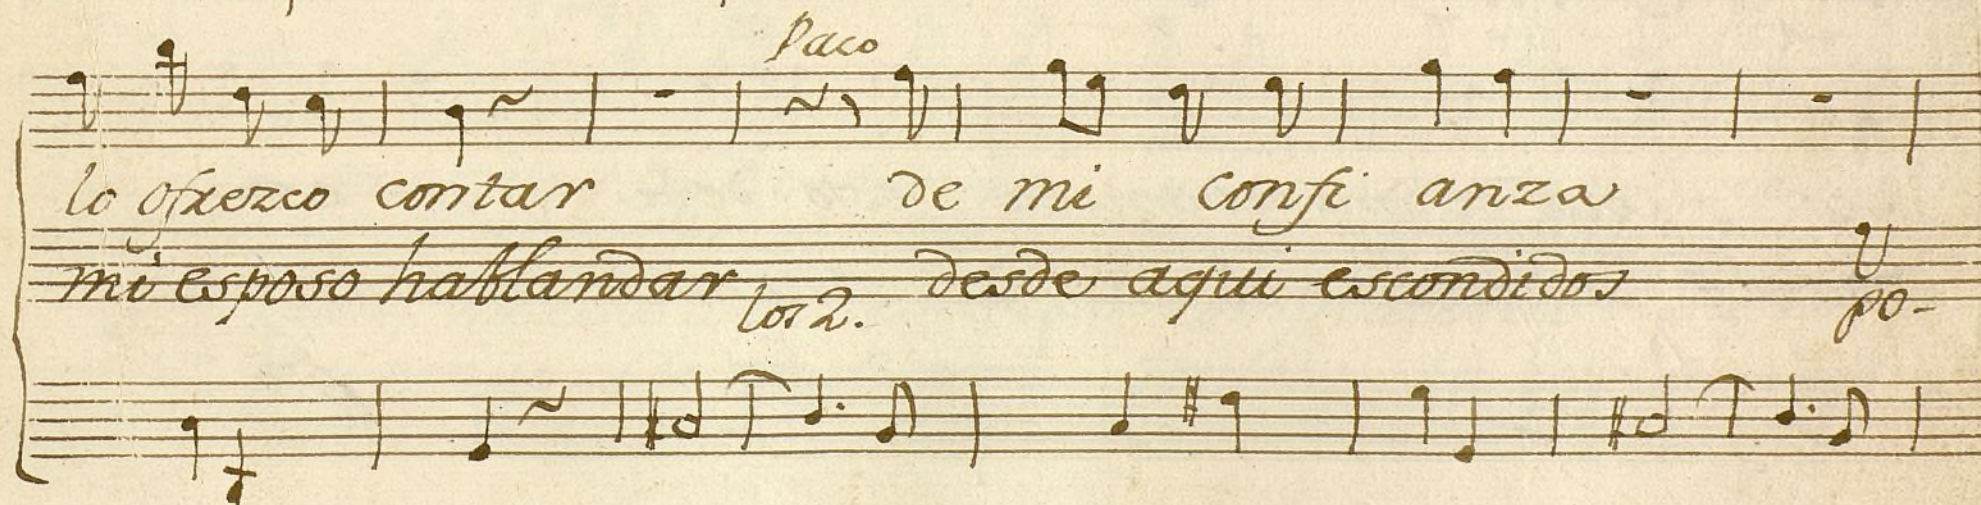 Paco
lo ofrezco contar de mi confi anza
mi esposo hablandar desde aqui escondidos
los 2. po-